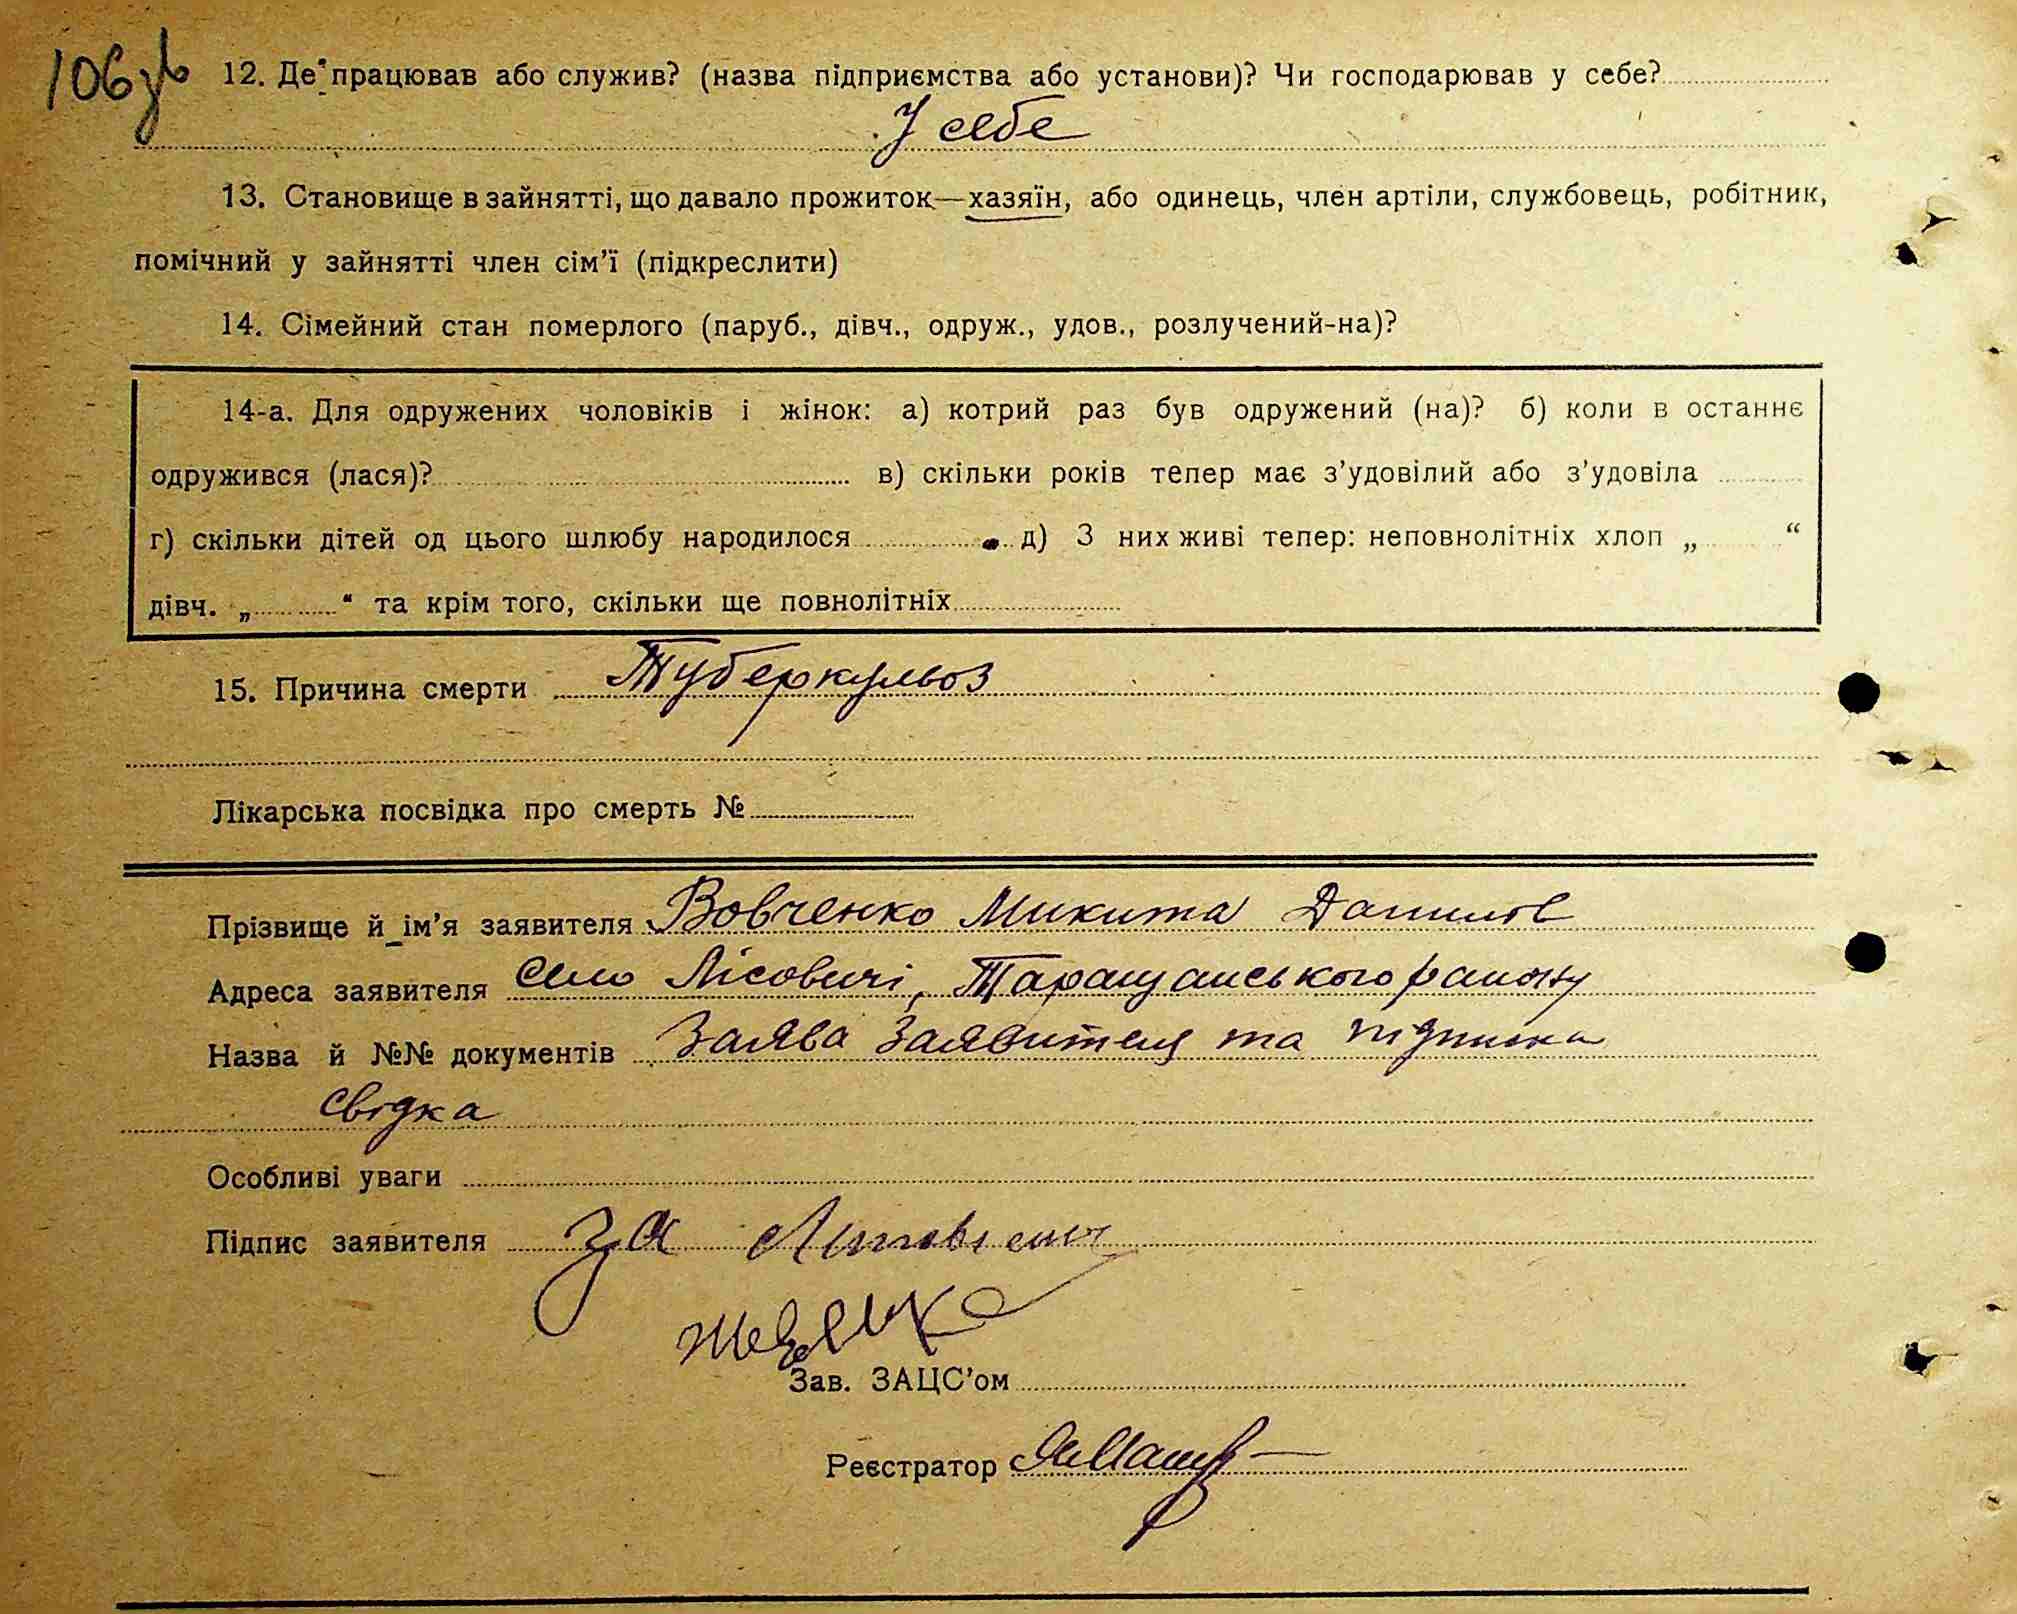 106 зв
12. Де працював або служив? (назва підприємства або установи)? Чи господарював у себе?
У себе
13. Становище в зайнятті, що давало прожиток—хазяїн, або одинець, член артіли, службовець, робітник,
помічний у зайнятті член сім'ї (підкреслити)
14. Сімейний стан померлого (паруб., дівч., одруж., удов., розлучений-на)?
14-а. Для одружених чоловіків і жінок: а) котрий раз був одружений (на)? б) коли в останнє
одружився (лася)? в) скільки років тепер має з'удовілий або з'удовіла
г) скільки дітей од цього шлюбу народилося д) З них живі тепер: неповнолітніх хлоп „ “
дівч. „ “ та крім того, скільки ще повнолітніх
15. Причина смерти Туберкульоз
Лікарська посвідка про смерть №
Прізвище й ім'я заявителя Вовченко Микита Данилов
Адреса заявителя село Лісовичі, Таращанського району
Назва й №№ документів Заява заявителя та підписка
свідка
Особливі уваги
Підпис заявителя За
Зав. ЗАЦС'ом
Реєстратор